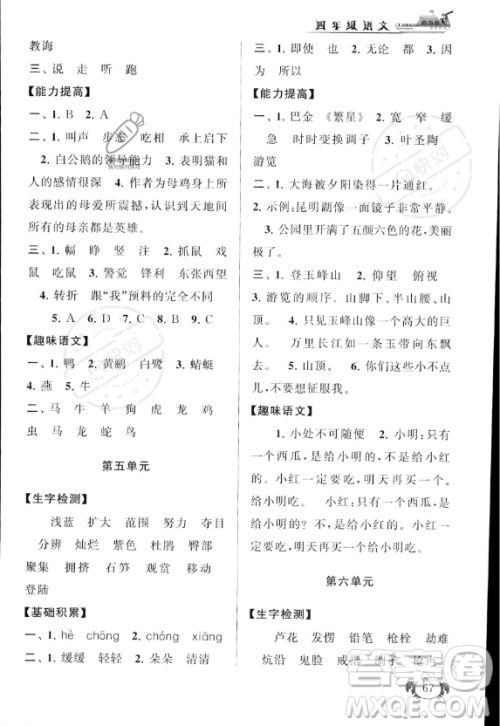 四年级语文
教诲
三、说 走 听 跑
【能力提高】
一、1. B 2. A
二、1. 叫声 步态 吃相 承上启下
2. 白公鹅的领导能力 3. 表明猫和
人的感情很深 4. 作者因为母鸡身上表
现出的母爱所震撼,认识到天地间所有
的母亲都是英雄。
三、1. 幅 睁 竖 注 2. 抓鼠 戏
鼠 吃鼠 3. 警觉 锋利 东荡西荡
4. 转折 跟“我”预料的完全不同
5. A 6. D 7. C 8. D 9. C
【趣味语文】
一、1. 鸭 2. 黄鹂 白鹭 3. 蜻蜓
4. 燕 5. 牛
二、马 牛 羊 狗 虎 龙 鸡
虫 马龙 龙蛇 龙马
第五单元
【生字检测】
浅蓝 扩大 范围 努力 夺目
分辨 灿烂 紫色 杜鹃 臀部
聚集 拥挤 石笋 观赏 移动
登陆
【基础积累】
一、1. hè chōng 2. chóng xiāng
二、1. 缓缓 轻轻 2. 朵朵 清清
三、1. 即使 也 无论 都 2. 因
为 所以
【能力提高】
一、1. 巴金 《繁星》 2. 宽 窄 缓
急 时时变换调子 3. 叶圣陶
游览
二、1. 大海被夕阳染得一片通红。
2. 示例:昆明湖像一面镜子非常平静。
3. 公园里开满了五颜六色的花,美丽
极了。
三、1. 登玉峰山 2. 仰望 俯视
3. 游览的顺序。山脚、山腰、上半山腰、山
顶。 4. 示例:玉峰山像一个高大的巨
人。 万里长江如一条玉带向东飘去。
5. 山顶。 6. 对,因为这些小不点儿
不怕苦,征服我。
【趣味语文】
1. 小处不可随便。 2. 小明:我只有
一个西瓜,是给小明的,不是给小红的。
小红一定要吃,明天再买吧。 小红:我只
有一个西瓜,是给小明的?不,是给小红
的。小明一定要吃,明天再买吧。
第六单元
【生字检测】
芦花 发愣 铅笔 枪栓 劫难
炕沿 鬼脸 戒
67